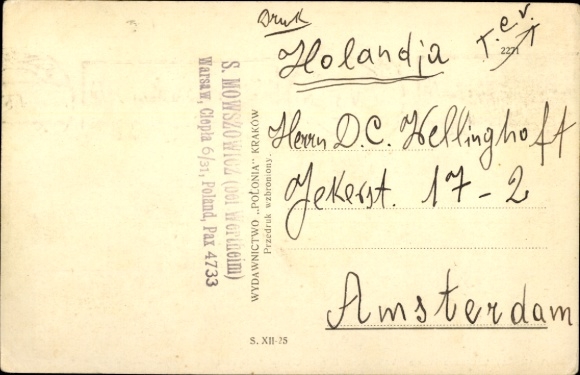 Druk
T.e.V.
T
2221
Holandja
Herrn D.C. Wellinghoft
Jekerst. 17-2
Amsterdam
S. MOWSZOWICZ (obl Wertheim)
Warsaw, Ciepla 6/31, Poland, Pax 4733
WYDAWNICTWO „POLONIA” KRAKÓW
Przedruk wzbroniony.
S. XII-25